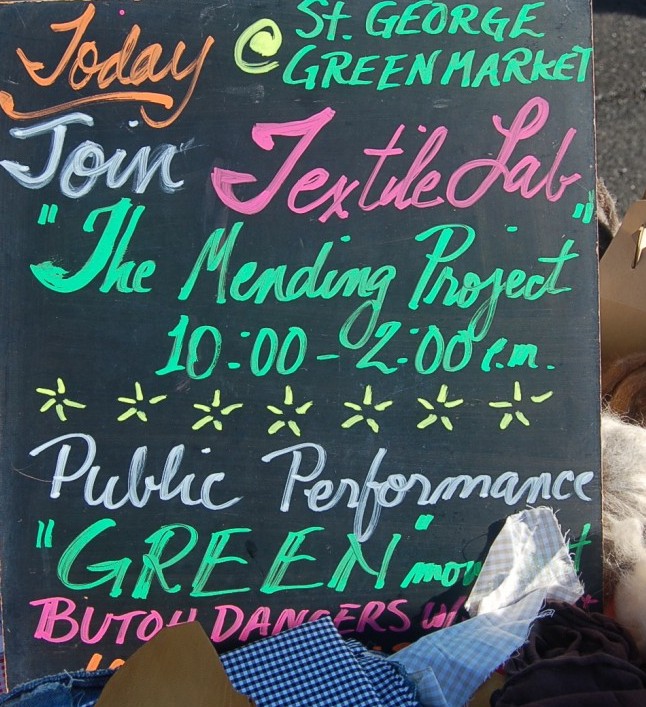 Today @ St. GEORGE
GREENMARKET
Join Textile Lab
"The Mending Project"
10:00 - 2:00 p.m.
Public Performance
"GREEN"
BUTOH DANCERS